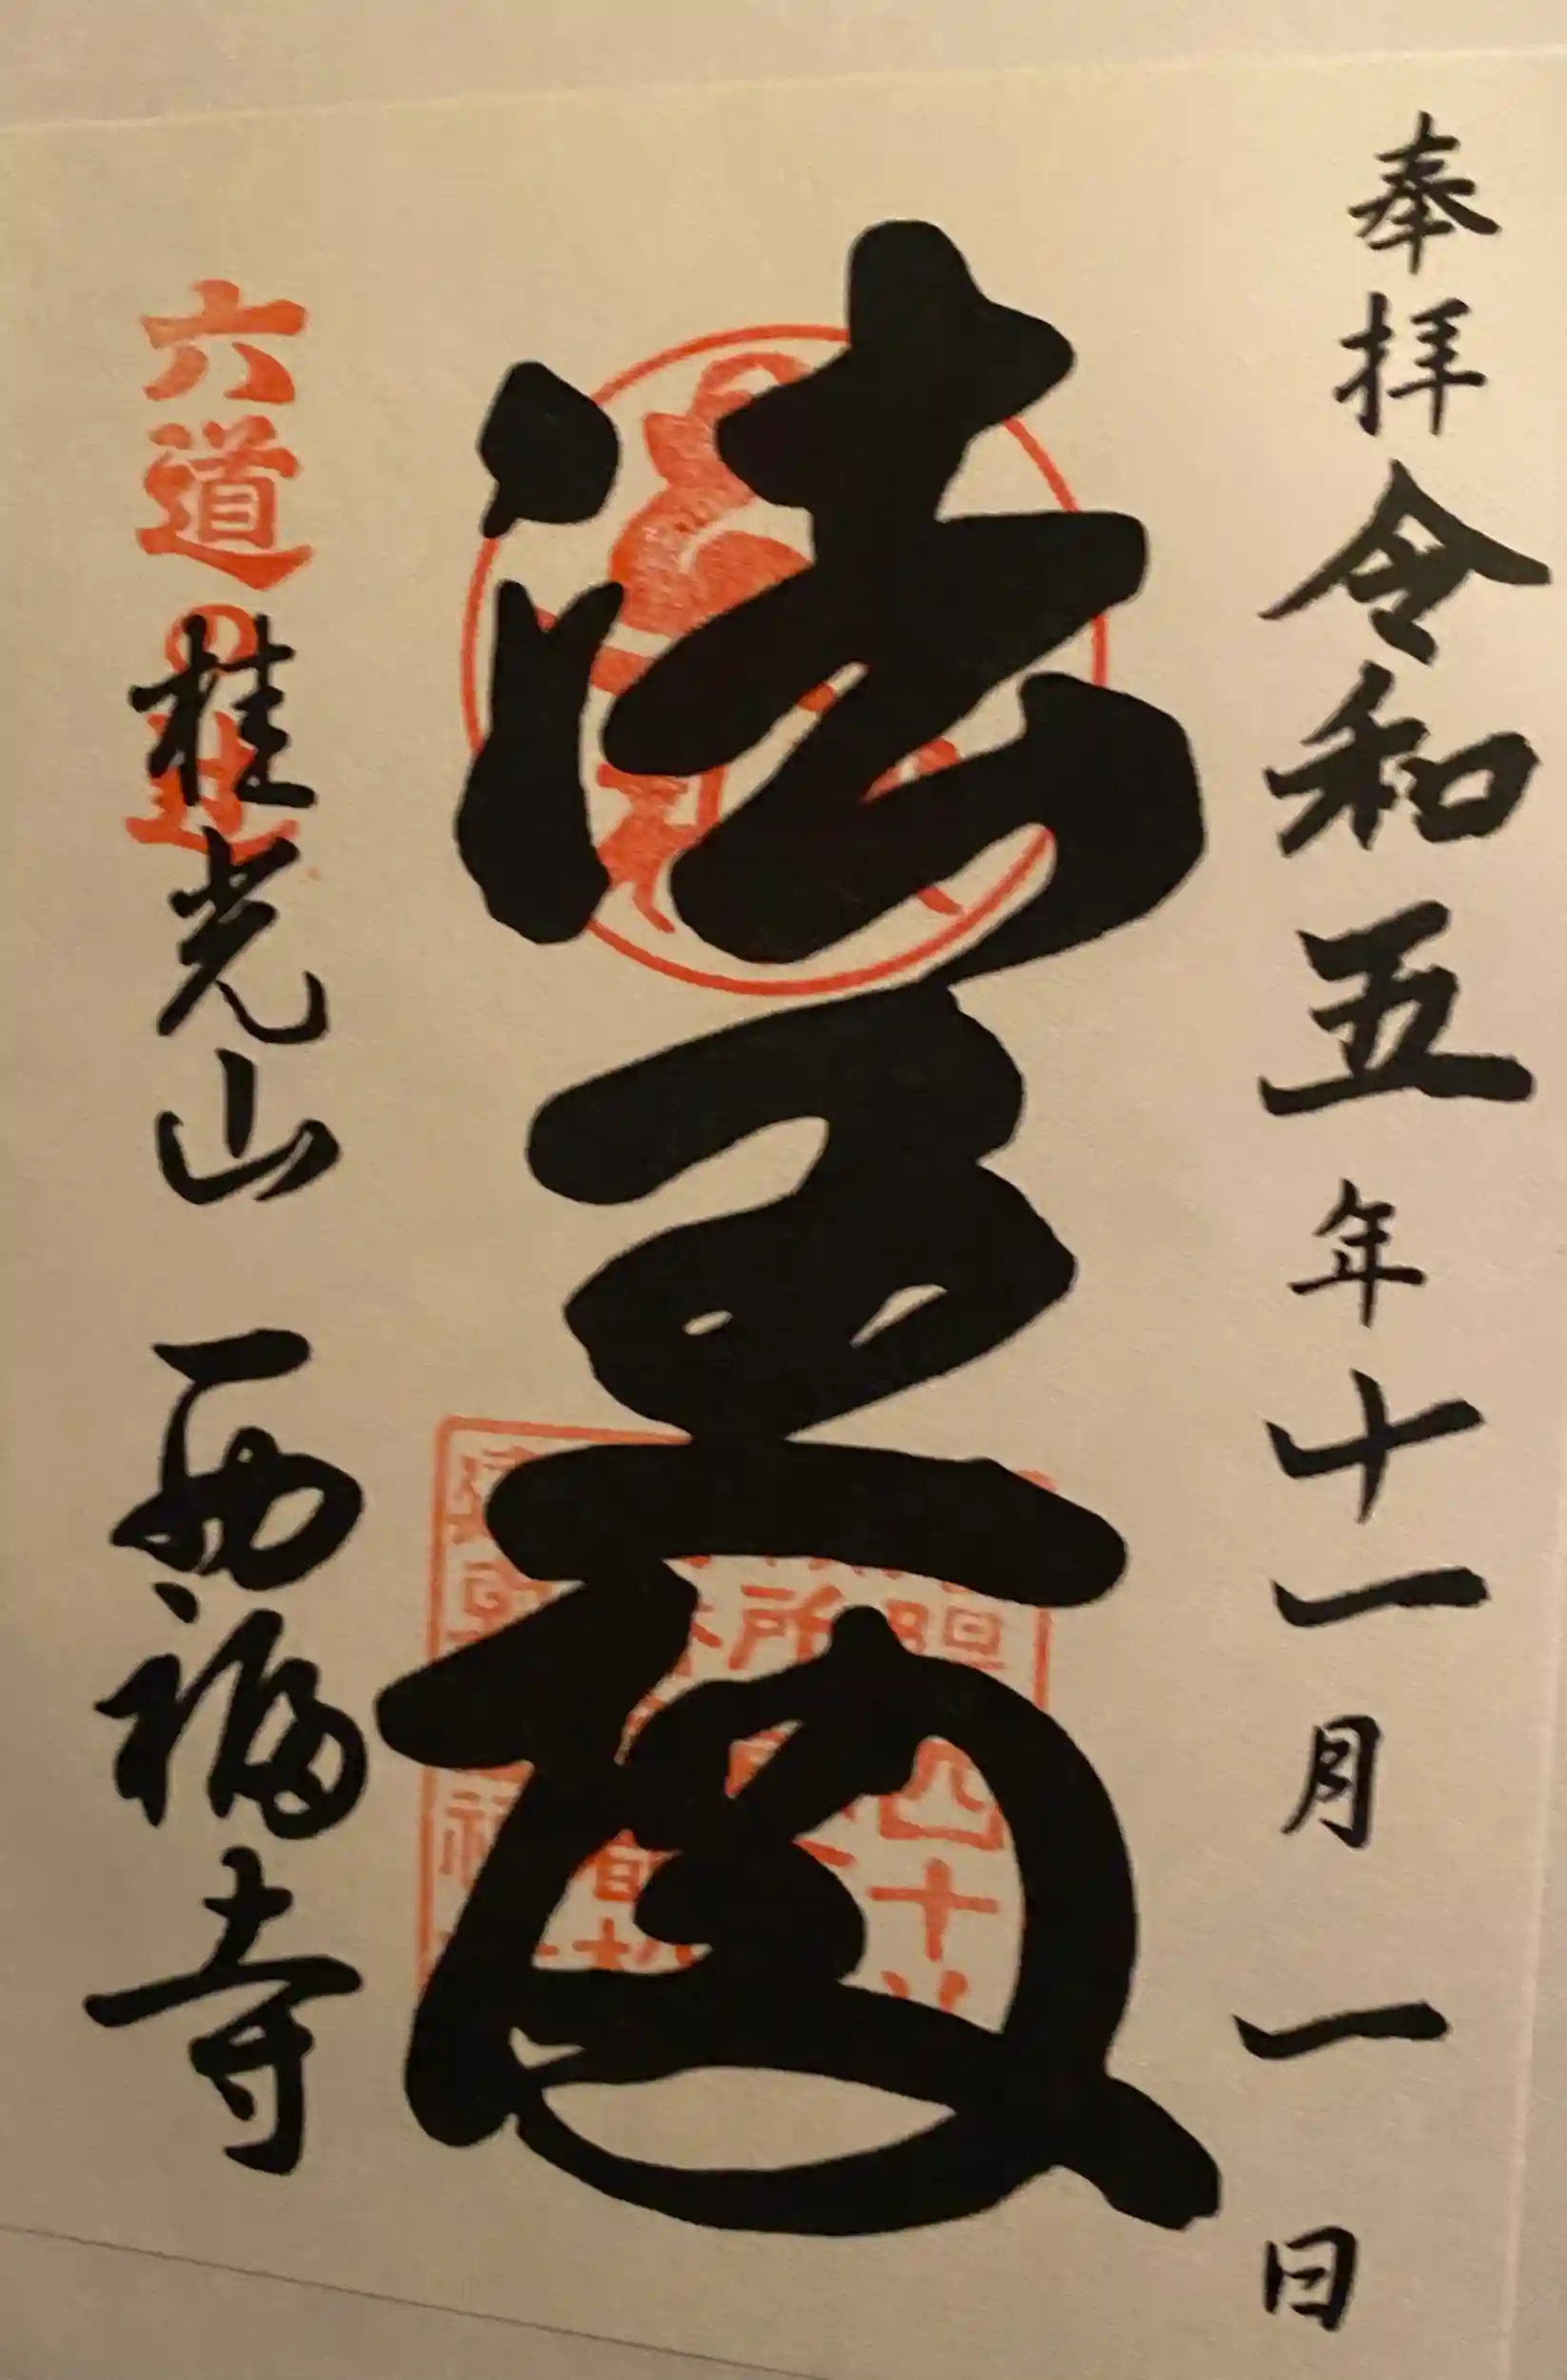 奉拝 令和五年十一月一日
法王殿
六道の辻
桂光山 西福寺